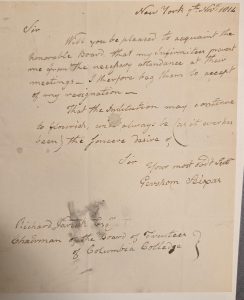 New York 7th Novr 1814
Sir
Will you be pleased to acquaint the
honorable Board, that my Infirmities prevent
me the necessary attendance at their
meetings — I therefore beg them to accept
of my resignation —
That the Institution may continue
to flourish, will always be (as it ever has
been) the sincere desire of
Sir
Your most
Gershom Seixas
Richard Esqr
Chairman of the Board of Trustees
of Columbia College